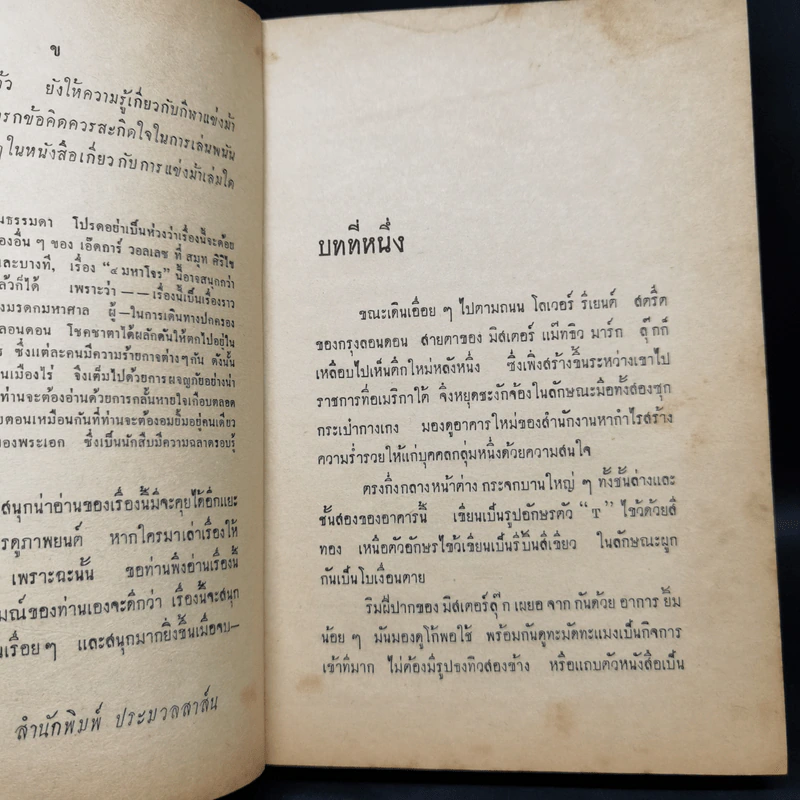 ข
ยังให้ความรู้เกี่ยวกับกีฬาแข่งม้า
รกข้อคิดควรสะกิดใจในการเล่นพนัน
ๆ ในหนังสือเกี่ยวกับการแข่งม้าเล่มใด
นธรรมดา โปรดอย่าเป็นห่วงว่าเรื่องนี้จะด้อย
องอื่น ๆ ของ เอ๊ดการ์ วอลเลซ ที่ สมุท ศิริไข
และบางที, เรื่อง “๔ มหาโจร” นี้อาจสนุกกว่า
ล้วก็ได้ เพราะว่า — — เรื่องนี้เป็นเรื่องราว
งมรดกมหาศาล ผู้—ในการเดินทางปกครอง
ลอนดอน โชคชาตาได้ผลักดันให้ตกไปอยู่ใน
ร ซึ่งแต่ละคนมีความร้ายกาจต่างๆ กัน ดังนั้น
นเมืองไร่ จึงเต็มไปด้วยการผจญภัยอย่างน่า
ท่านจะต้องอ่านด้วยการกลั้นหายใจเกือบตลอด
ยตอนเหมือนกันที่ท่านจะต้องอมยิ้มอยู่คนเดียว
องพระเอก ซึ่งเป็นนักสืบมีความฉลาดรอบรู้
สนุกน่าอ่านของเรื่องนี้มีจะคุยได้อีกแยะ
รดูภาพยนต์ หากใครมาเล่าเรื่องให้
เพราะฉะนั้น ขอท่านพึงอ่านเรื่องนี้
มณ์ของท่านเองจะดีกว่า เรื่องนี้จะสนุก
นเรื่อยๆ และสนุกมากยิ่งขึ้นเมื่อจบ—
สำนักพิมพ์ ประมวลสาส์น
บทที่หนึ่ง
ขณะเดินเอื่อย ๆ ไปตามถนน โลเวอร์ รีเยนต์ สตรีต
ของกรุงลอนดอน สายตาของ มิสเตอร์ แม๊ทธิว มาร์ก ลุ๊กก็
เหลือบไปเห็นตึกใหม่หลังหนึ่ง ซึ่งเพิ่งสร้างขึ้นระหว่างเขาไป
ราชการที่อเมริกาใต้ จึงหยุดชะงักจ้องในลักษณะมือทั้งสองซุก
กระเป๋ากางเกง มองดูอาคารใหม่ของสำนักงานหากำไรสร้าง
ความร่ำรวยให้แก่บุคคลกลุ่มหนึ่งด้วยความสนใจ
ตรงกึ่งกลางหน้าต่าง กระจกบานใหญ่ ๆ ทั้งชั้นล่างและ
ชั้นสองของอาคารนี้ เขียนเป็นรูปอักษรตัว “T” ไขว้ด้วยสี
ทอง เหนือตัวอักษรไขว้เขียนเป็นริบบิ้นสีเขียว ในลักษณะผูก
กันเป็นโบเงื่อนตาย
ริมฝีปากของ มิสเตอร์ลุ๊ก เผยอ จาก กันด้วย อาการ ยิ้ม
น้อย ๆ มันมองดูโก้พอใช้ พร้อมกันดูทะมัดทะแมงเป็นกิจการ
เข้าที่มาก ไม่ต้องมีรูปธงทิวสองข้าง หรือแถบตัวหนังสือเป็น